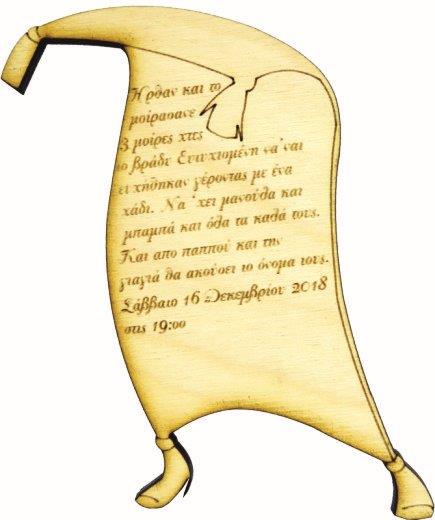 Ηρθαν και το
μοίρασανε
3 μοίρες χτες
το βράδυ Ευτυχισμένη να 'ναι
ευχήθηκαν γέροντας με ένα
χάδι. Να 'χει μανούλα και
μπαμπά και όλα τα καλά τους.
Και απο παππού και την
γιαγιά θα ακούσει το όνομα τους.
Σάββαιο 16 Δεκεμβρίου 2018
στις 19:00